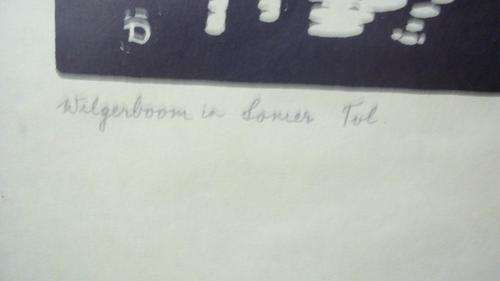 D
Wilgerboom in Somer Tol.